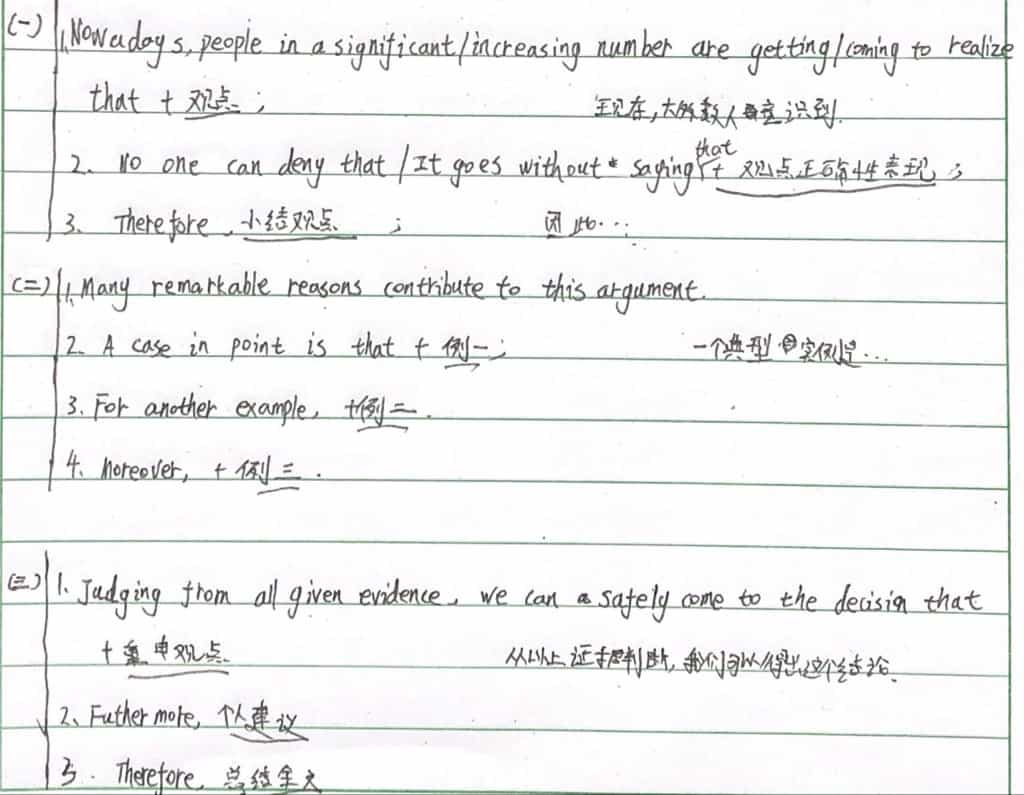 (一) 1. Nowadays, people in a significant/increasing number are getting/coming to realize
that + 观点; 现在,大多数人意识到.
2. No one can deny that / It goes without saying that + 观点正确性表现;
3. Therefore, 小结观点; 因此...;
(二) 1. Many remarkable reasons contribute to this argument.
2. A case in point is that + 例一; 一个典型的实例是...
3. For another example, +例二.
4. Moreover, + 例三.
(三) 1. Judging from all given evidence, we can safely come to the decision that
+ 重申观点 从以上证据判断,我们可以得出这个结论.
2. Futhermore, 个人建议
3. Therefore, 总结全文